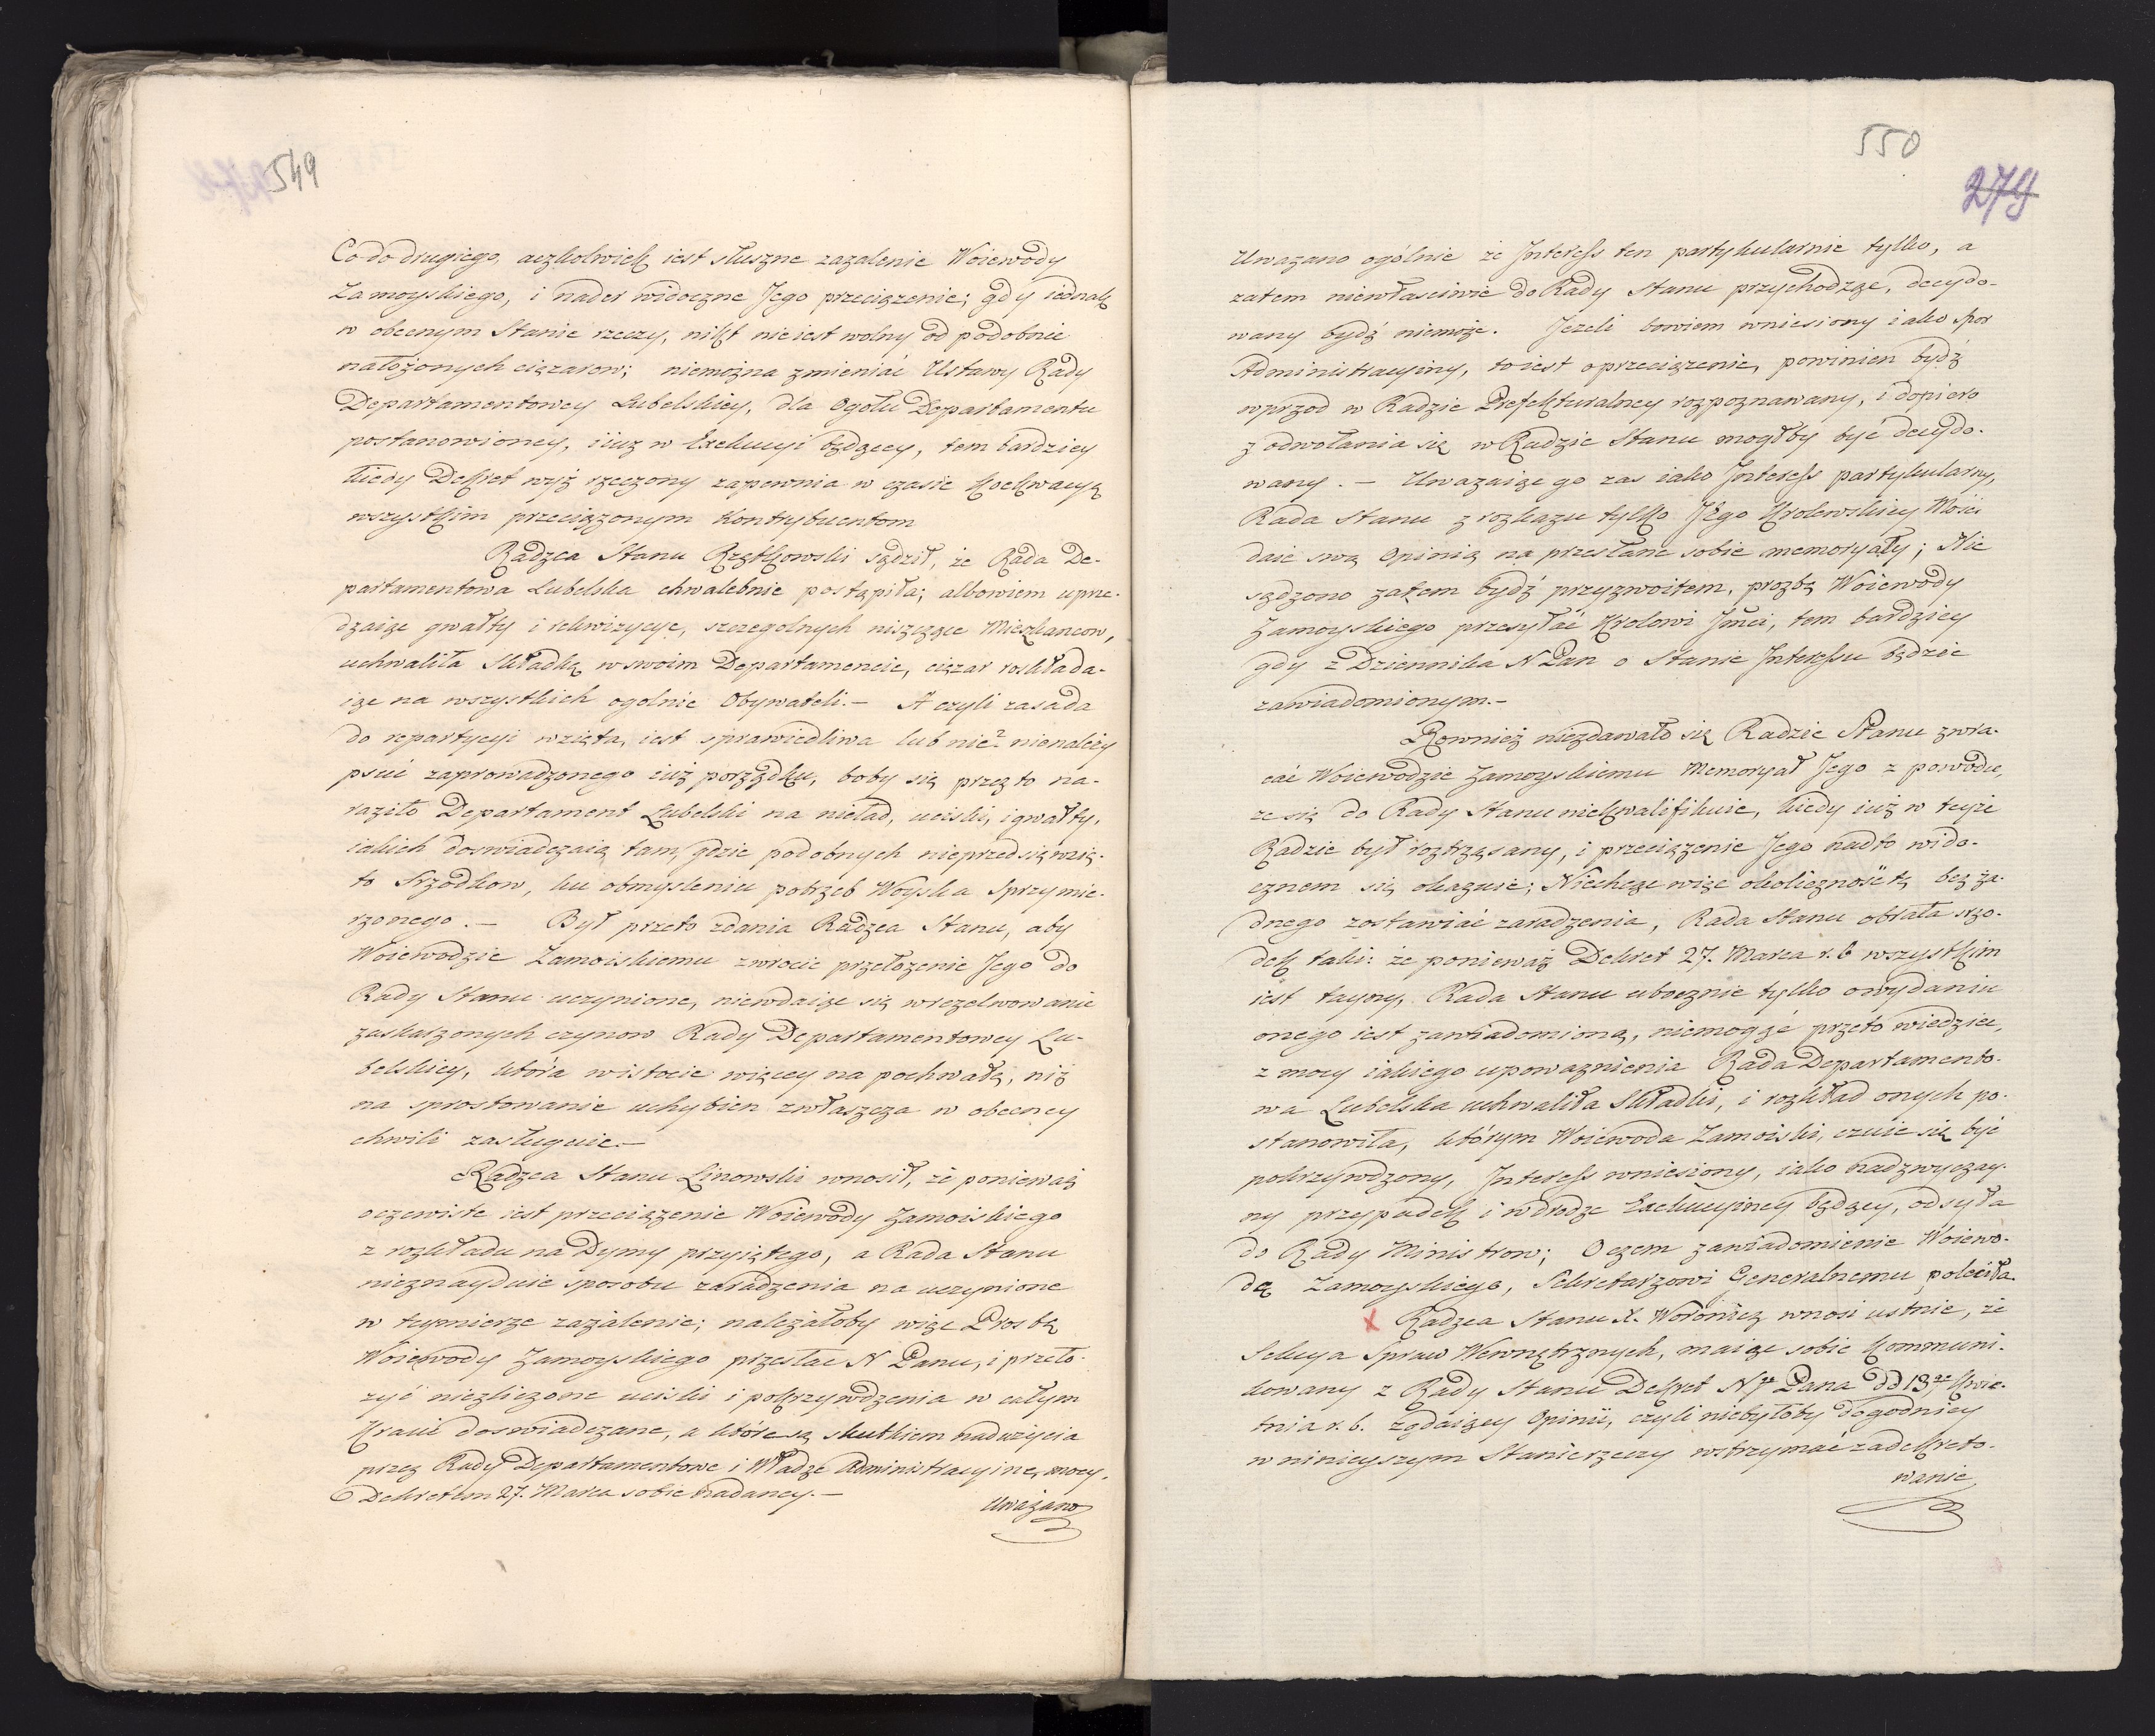 549
Co do drugiego, aczkolwiek iest słuszne zażalenie Woiewody
Zamoyskiego, i nader widoczne Jego przeciążenie; gdy iednak
w obecnym Stanie rzeczy, nikt nie iest wolny od podobnie
nałożonych ciężarow; niemożna zmieniać Ustawy Rady
Departamentowey Lubelskiey, dla Ogołu Departamentu
postanowioney, i iuż w Exekucyi będącey, tem bardziey
kiedy Dekret wyż rzeczony zapewnia w czasie
wszystkim przeciążonym Kontrybuentom
Radzca Stanu Rzętkowski sądził, że Rada De-
partamentowa Lubelska chwalebnie postąpiła; albowiem uprze-
dzaiąc gwałty i rekwizycye, szczegolnych niszczące Mieszkancow,
uchwaliła składkę w swoim Departamencie, ciężar roskłada-
iąc na wszystkich ogolnie Obywateli. – A czyli zasada
do repartycyi wzięta, iest sprawiedliwa lub nie? nienależy
psuć zaprowadzonego iuż porządku, boby się przez to na-
raziło Departament Lubelski na nieład, uciski, i gwałty,
iakich doswiadczaią tam, gdzie podobnych nieprzedsięwzię-
to srzodkow, ku obmysleniu potrzeb Woyska Sprzymie-
rzonego. – Był przeto zdania Radzca Stanu, aby
Woiewodzie Zamoiskiemu zwrocić przełożenie Jego do
Rady Stanu uczynione, niewdaiąc się w rezolwowanie
zaskarżonych czynow Rady Departamentowey Lu-
belskiey, która w istocie więcey na pochwałę, niż
na sprostowanie uchybien zwłaszcza w obecney
chwili zasługuie. –
Radzca Stanu Linowski wnosił, że ponieważ
oczewiste iest przeciążenie Woiewody Zamoiskiego
z rozkładu na Dymy przyiętego, a Rada Stanu
nieznayduie sposobu zaradzenia na uczynione
w teymierze zażalenie; należałoby więc Prosbę
Woiewody Zamoyskiego przesłac N Panu, i przeło-
żyć niezliczone uciski i pokrzywdzenia w całym
Kraiu doswiadczane, a które są skutkiem nadużycia
przez Rady Departamentowe i Władze Administracyine, mocy,
Dekretem 27. Marca sobie nadaney. –
Uważano
550
279
Uważano ogólnie że Interess ten partykularnie tylko, a
zatem niewłasciwie do Rady Stanu przychodząc, decydo-
wany bydź niemoże. Jeżeli bowiem wniesiony iako spor
Administracyiny, to iest o przeciążenie, powinien bydź
wprzod w Radzie Prefekturalney rozpoznawany, i dopiero
z odwołania się w Radzie Stanu mogłby być decydo-
wany. – Uważaiąc go zas iako Interess partykularny,
Rada Stanu z rozkazu tylko Jego Krolewskiey Mości
daie swą Opinią na przesłane sobie memoryały; Nie
sądzono zatem bydź przyzwoitem, prozbę Woiewody
Zamoyskiego przesyłać Krolowi Jmci, tem bardziey
gdy z Dziennika N Pan o Stanie Interessu będzie
zawiadomionym. –
Rownież niezdawało się Radzie Stanu zwra-
cać Woiewodzie Zamoyskiemu Memoryał Jego z powodu,
że się do Rady Stanu niekwalifikuie, kiedy iuż w teyże
Radzie był roztrząsany, i przeciążenie Jego nadto wido-
cznem się okazuie; Niechcąc więc okoliczność tę bez ża-
dnego zostawiać zaradzenia, Rada Stanu obrała srzo-
dek taki: że ponieważ Dekret 27. Marca r. b wszystkim
iest tayny, Rada Stanu ubocznie tylko o wydaniu
onego iest zawiadomioną, niemogąc przeto wiedzieć,
z mocy iakiego upoważnienia Rada Departamento-
wa Lubelska uchwaliła Składki, i rozkład onych po-
stanowiła, którym Woiewoda Zamoiski, czuie się być
pokrzywdzony, Interess wniesiony, iako nadzwyczay-
ny przypadek i w drodze Exekucyiney będący, odsyła
do Rady Ministrow; O czem zawiadomienie Woiewo-
dę Zamoyskiego, Sekretarzowi Generalnemu poleciła.
x Radzca Stanu X. Woronicz wnosi ustnie, że
Sekcya Spraw Wewnętrznych, maiąc sobie Kommuni-
kowany z Rady Stanu Dekret Ngo Pana dd 13go Kwie-
tnia r. b. żądaiący Opinii, czyli niebyłoby dogodniey
w ninieyszym Stanie rzeczy wstrzymać zadekreto-
wanie